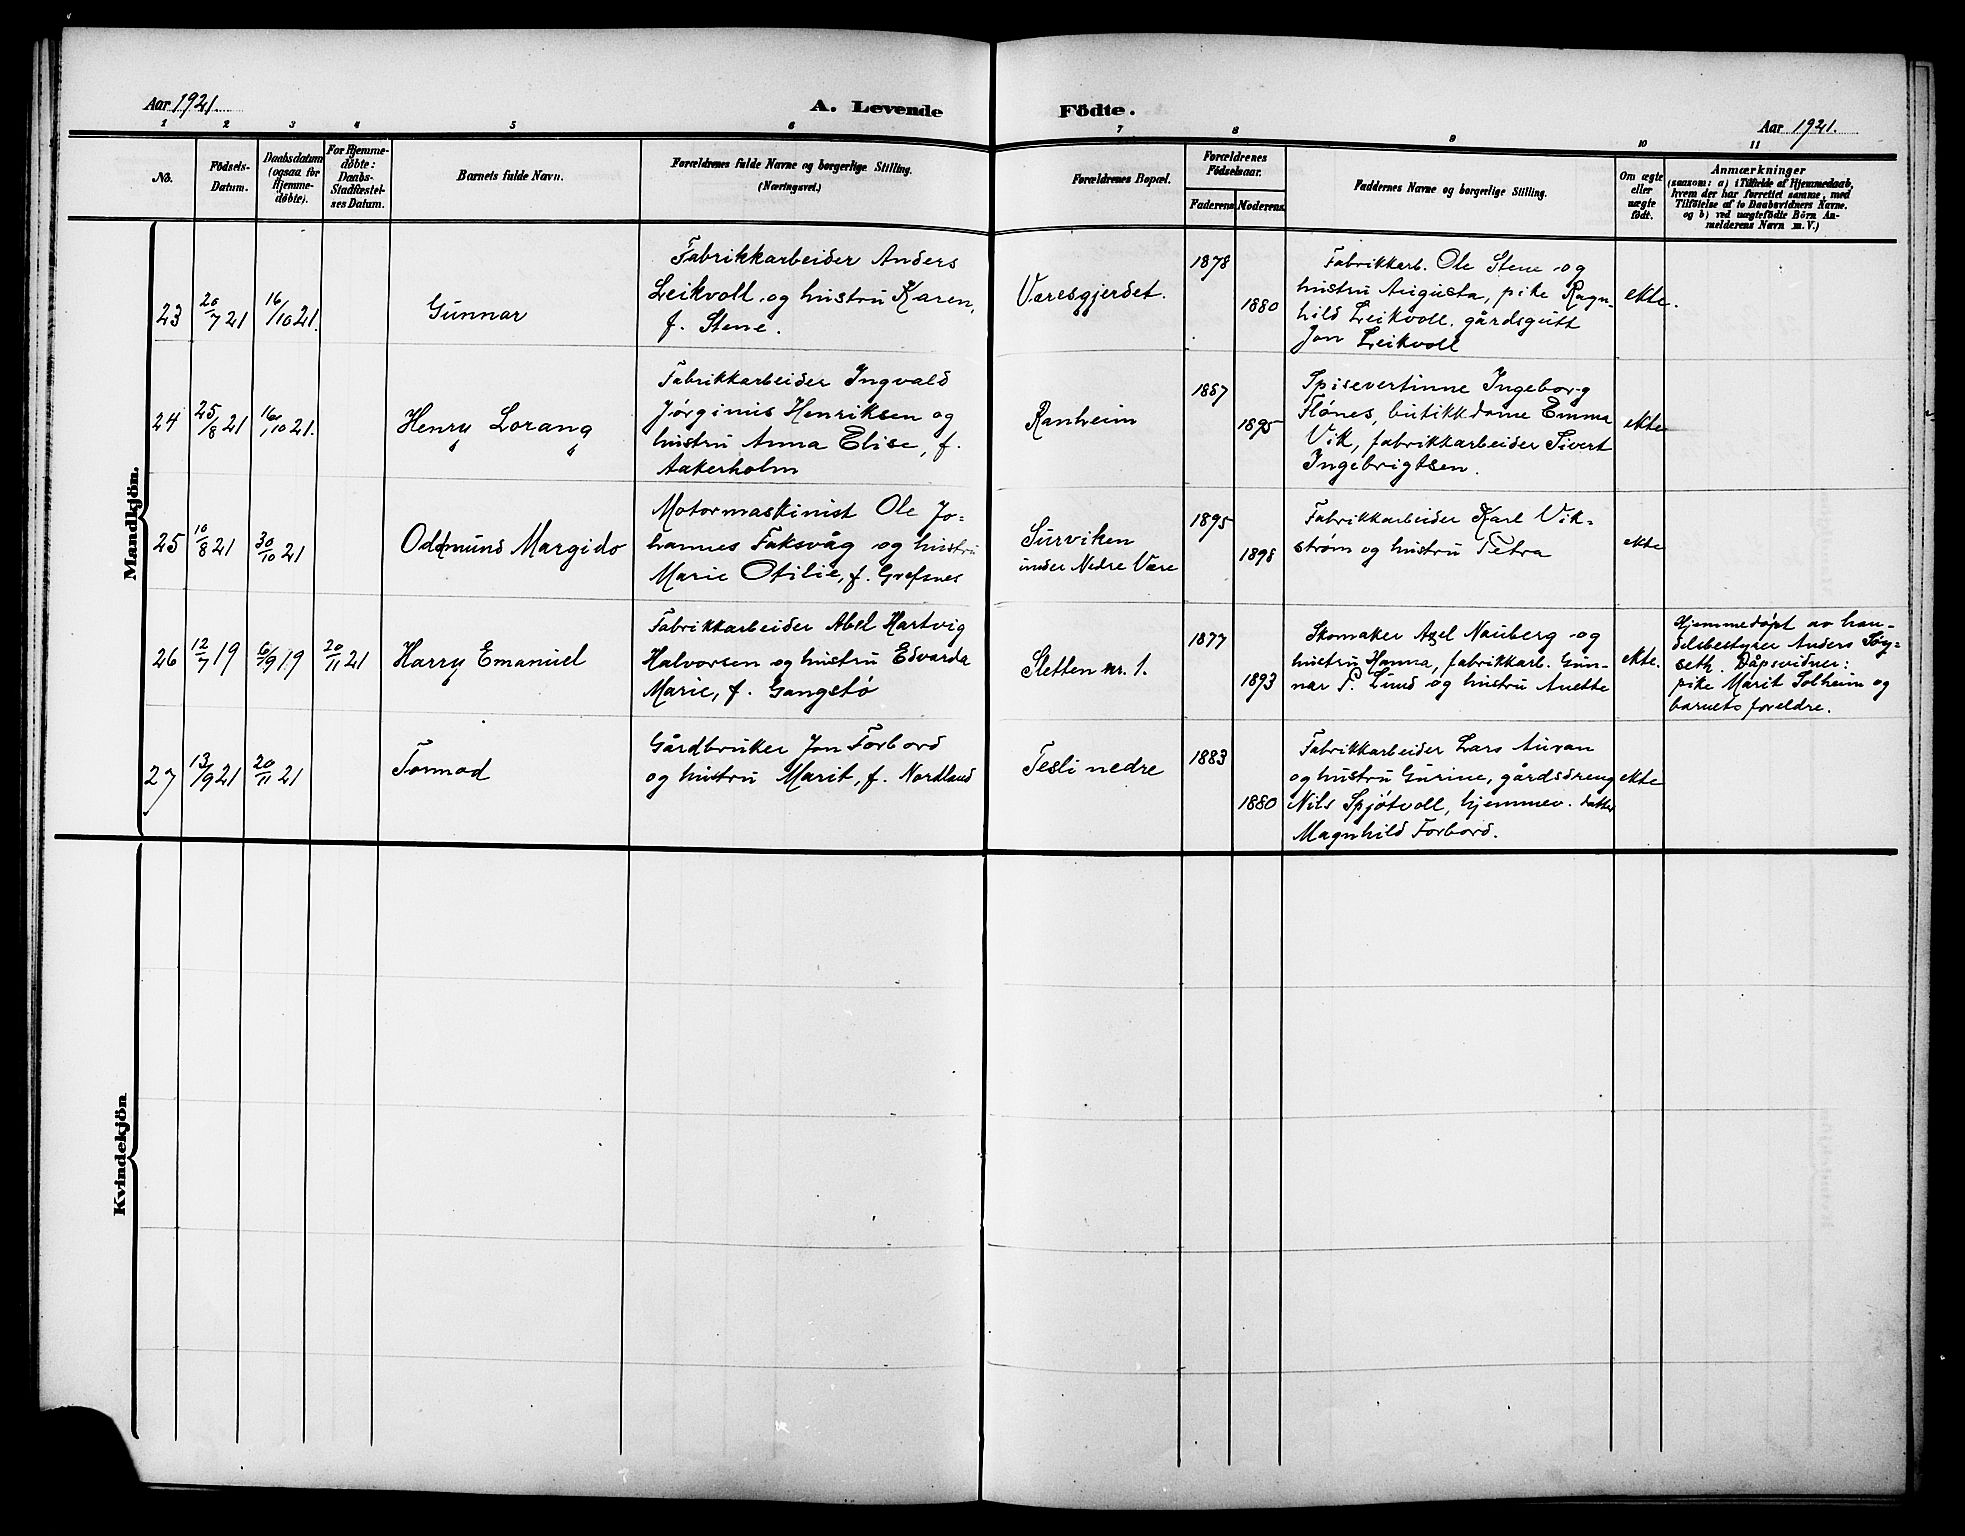 Aar 1921.
A. Levende Födte.
Aar 1921.
1 2 3 4 5 6 7 8 9 10 11
No.
Födsels-
Datum.
Daabsdatum
(ogsaa for
Hjemme-
døbte).
For Hjemme-
døbte:
Daabs-
Stadfæstel-
ses Datum.
Barnets fulde Navn.
Forældrenes fulde Navne og borgerlige Stilling.
(Næringsvei.)
Forældrenes Bopæl.
Forældrenes
Fødselsaar.
Faderens
Moderens
Faddernes Navne og borgerlige Stilling.
Om ægte
eller
uægte
født.
Anmærkninger
(saasom: a) i Tilfælde af Hjemmedaab,
hvem der har forrettet samme, med
Tilføielse af to Daabsvidners Navne.
og b) ved uægtefødte Börn An-
melderens Navn m. V.)
Mandkjön.
23
20/7 21
16/10 21.
Gunnar
Fabrikkarbeider Anders
Leikvoll og hustru Karen,
f. Stene.
Væresgjerdet.
1878
1880
Fabrikkarb. Ole Stene og
hustru Augusta, pike Ragn-
hild Leikvoll. gårdsgutt
Jon Leikvoll
ekte.
24
25/8 21
16/10 21.
Henry Lorang
Fabrikkarbeider Ingvald
Jørginus Henriksen og
hustru Anna Elise, f.
Aakerholm
Ranheim
1887
1895
Spisevertinne Ingeborg
Flønes, butikkdame Emma
Vik, fabrikkarbeider Sivert
Ingebrigtsen.
ekte
25
10/8 21
30/10 21
Oddmund Margido
Motormaskinist Ole Jo-
hannes Faksvåg og hustru
Marie Otilie, f. Grefsnes
Surviken
under Nedre Være
1895
1898
Fabrikkarbeider Karl Vik-
strøm og hustru Petra
ekte
26
12/7 19
6/9 19
20/11 21
Harry Emanuel
Fabrikkarbeider Abel Hartvig
Halvorsen og hustru Edvarda
Marie, f. Gangstø
Sletten nr. 1.
1877
1893
Skomaker Axel Nauberg og
hustru Hanna, fabrikkarb. Gun-
nar P. Lund og hustru Anette
ekte.
Hjemmedøpt av han-
delsbestyrer Anders Søy-
seth. Dåpsvidner:
pike Marit Solheim og
barnets foreldre.
27
13/9 21
20/11 21
Tormod
Gårdbruker Jon Forbord
og hustru Marit, f. Nordland
Tesli nedre
1883
1880
Fabrikkarbeider Lars Auran
og hustru Gurine, gårdsdreng
Nils Spjøtvoll, hjemmev. datter
Magnhild Forbord.
ekte
Kvindekjön